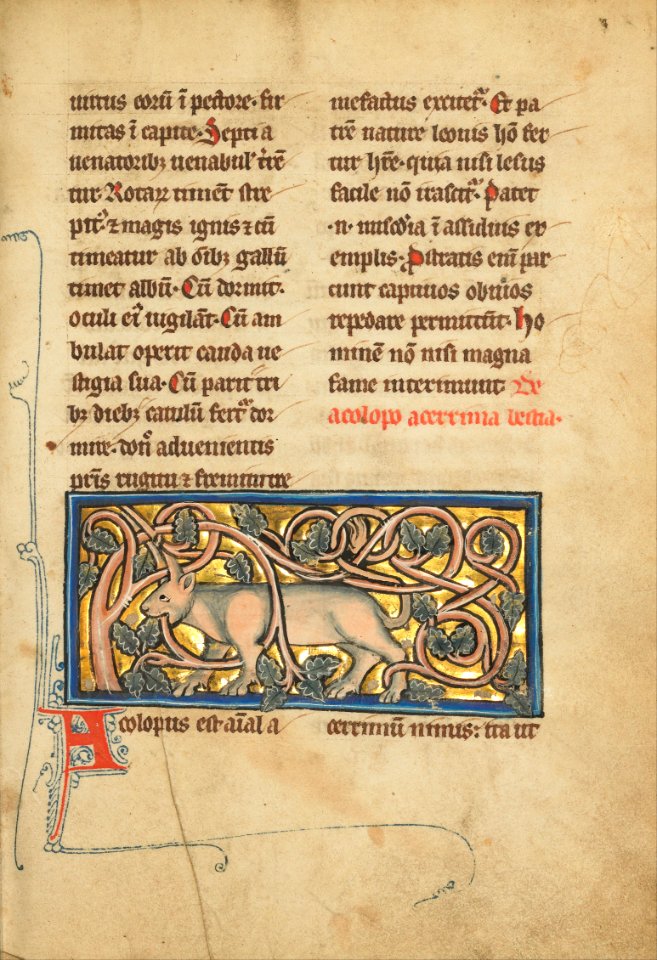 uirtus eorū ī pectore· fir
mitas ī capite· Septi a
uenatoribꝫ uenabul' t'rē
tur· Rotaꝝ timēt stre
pit᷒· ⁊ magis ignis ⁊ cū
timeatur ab oībꝫ gallū
timet albū· Cū dormit·
oculi ei᷒ uigilāt· Cū am
bulat operit cauda ue
stigia sua· Cū parit tri
bꝫ diebꝫ catulū fert᷑ dor
mire· don᷒ aduenientis
pr̄is rugitu ⁊ fremitu re
mefactus excitet᷑· Et pa
trē nature leonis hō fer
tur hr̄e· quia nisi lesus
facile nō irascit᷑· Patet
·n· misc̄dia ī assiduis ex
emplis· Prostratis enī par
cunt captiuos obuios
repedare permittūt· Ho
minē nō nisi magna
fame interimunt· De
acolopo acerrima bestia·
Acolopus est aīal a
cerrimū nimis: ita ut